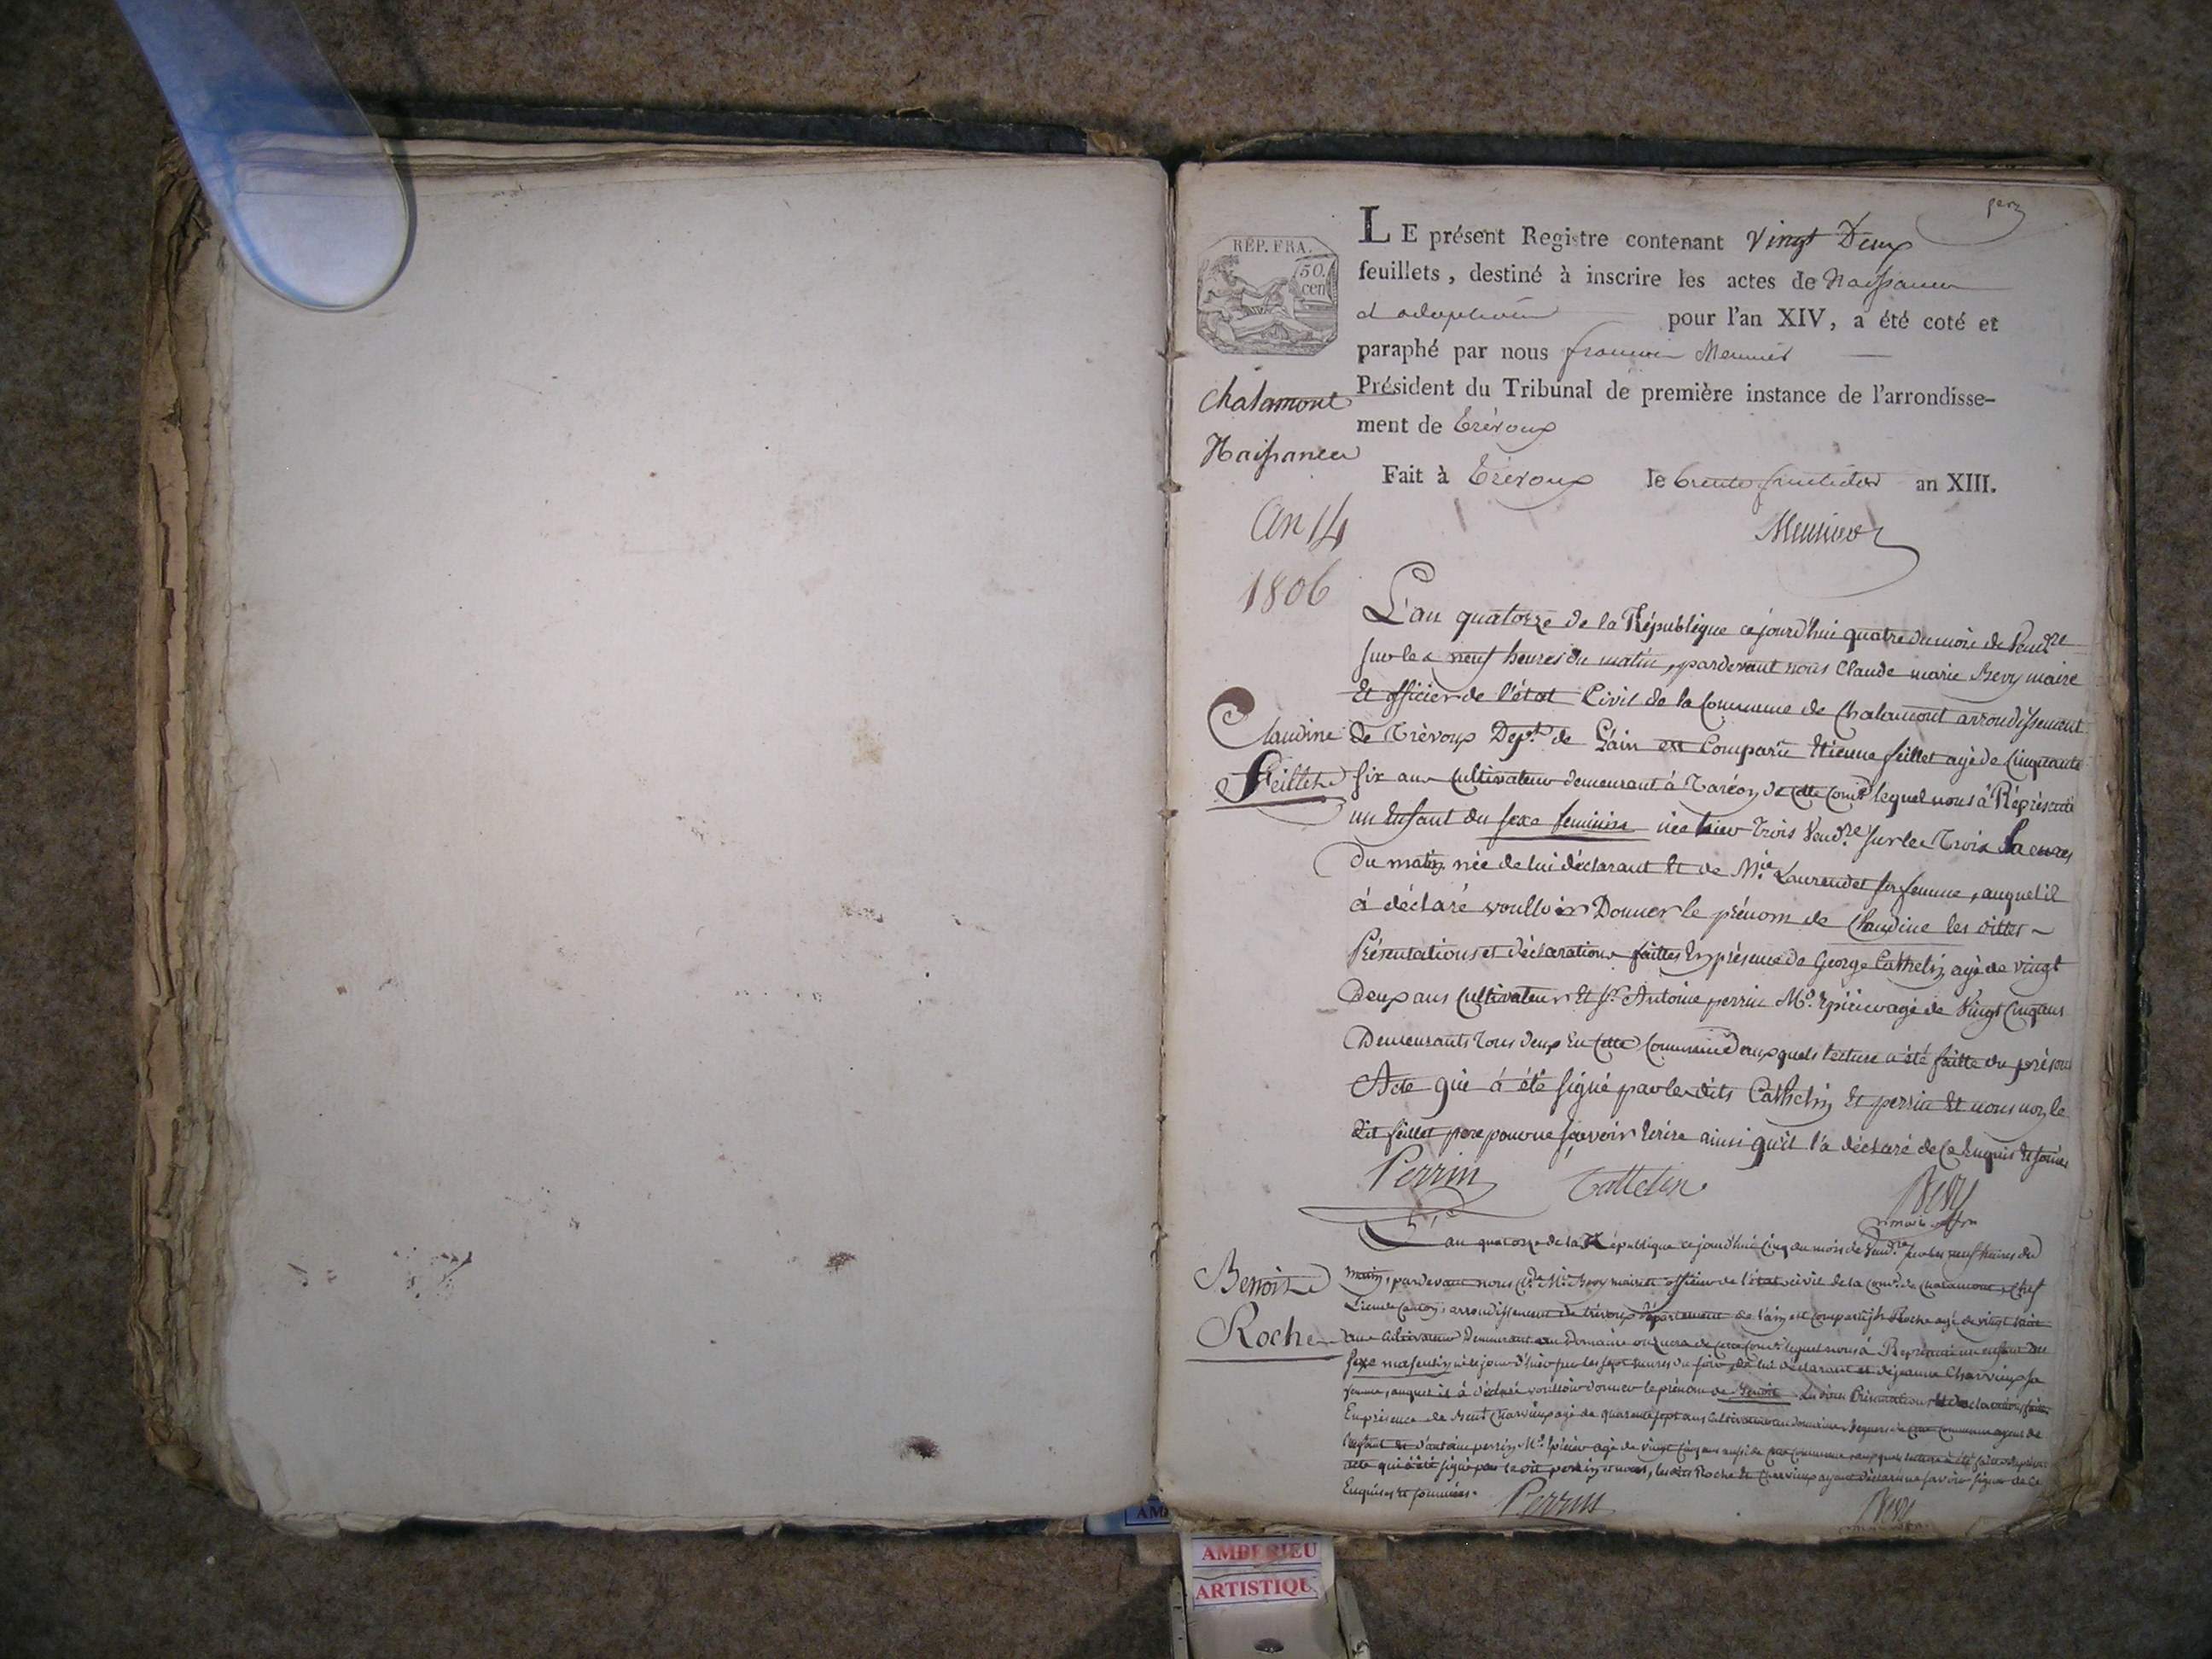 REP. FRA.
50.
cen
LE présent Registre contenant Vingt Deux
feuillets, destiné à inscrire les actes de Naissance
et adoption pour l'an XIV, a été coté et
paraphé par nous françois Meunier
Président du Tribunal de première instance de l'arrondisse-
ment de Trévoux
Fait à Trévoux le trente fructidor an XIII.
Meunier
Chalamont
Naissances
An 14
1806
L'an quatorze de la République cejourd'hui quatre du mois de Vend.re
sur les neuf heures du matin, pardevant nous Claude marie Bevy maire
Et officier de l'état Civil de la Commune de Chalamont arrondissement
Claudine
Feillet
de Trévoux Dept. de L'ain est Comparu Etienne feillet agé de Cinquante
six ans Cultivateur demeurant à de cette Com.e lequel nous à Réprésenté
un Enfant du sexe feminin née hier Trois Vend.re sur les Trois heures
du matin née de lui déclarant Et de M.ie Laurendet sa femme, auquel il
à déclaré voulloir Donner le prénom de Claudine les dittes
Présentations et déclarations faittes En présence de George Cathelin agé de vingt
Deux ans Cultivateur Et S.r Antoine perrin M.d Epicier agé de Vingt Cinq ans
Demeurants Tous deux En Cette Commune auxquels lecture a été faitte du présent
Acte qui à été signé par les dits Cathelin Et perrin Et nous non le
dit feillet pere pour ne sçavoir Ecrire ainsi qu'il l'a déclaré de Ce Enquis Et sommé
Perrin Cattelin Bevy
Benoit
Roche
L'an quatorze de la République cejourd'hui Cinq du mois de Vend.re sur les neuf heures du
matin, pardevant nous Cl.de M.ie Bevy maire et officier de l'état civil de la Com.e de Chalamont, Chef
Lieu de Canton, arrondissement de trévoux département de l'ain est comparu Roche agé de vingt
ans Cultivateur Demeurant au Domaine de cette Com.e lequel nous à Représenté un enfant du
sexe masculin né le jour d'hier sur les sept heures du soir, de lui déclarant et de jeanne Charvieux sa
femme, auquel il à déclaré voulloir donner le prénom de Benoit. Les dittes Présentations Et déclarations faittes
En présence de Benoit Charvieux agé de quarante sept ans Cultivateur au domaine de cette Commune ayeul de
l'enfant Et d'antoine perrin M.d Epicier agé de vingt Cinq ans aussi de cette Commune, auxquels lecture à été faitte du présent
acte qui à été signé par le dit perrin et nous, les dits Roche Et Charvieux ayant déclaré ne savoir signer de Ce
Enquis et sommés.
Perrin Bevy
AMBERIEU
ARTISTIQU